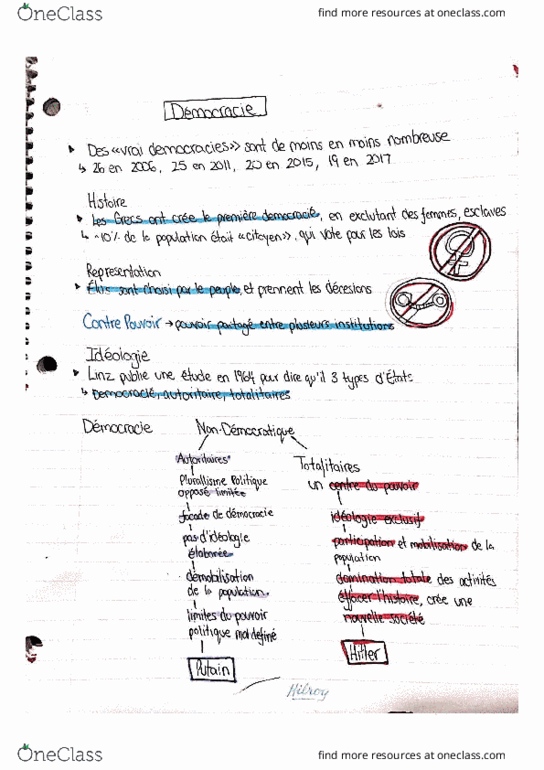 OneClass
find more resources at oneclass.com
Démocracie
Des «vrai democracies» sont de moins en moins nombreuse
↳ 26 en 2006, 25 en 2011, 20 en 2015, 19 en 2017
Histoire
Les Grecs ont crée le première democracié, en exclutant des femmes, esclaves
↳ ~10% de la population était «citoyen», qui vote pour les lois
Representation
Élus sont choisi par le peuple, et prennent les décesions
Contre Pouvoir → pouvoir partagé entre plusieurs institutions
Idéologie
Linz publie une étude en 1964 pour dire qu'il 3 types d'États
↳ Democracié, autoritaire, totalitaires
Démocracie Non-Démocratique
Autoritaires Totalitaires
Plurallisme Politique un centre du pouvoir
opposé limitée
façade de démocracie idéologie exclusif
pas d'idéologie participation et mobilisation de la
élaborée population
démobilisation domination totale des activités
de la population effacer l'histoire, crée une
limites du pouvoir nouvelle société
politique mal definé
Putain Hitler
Hilroy
OneClass
find more resources at oneclass.com